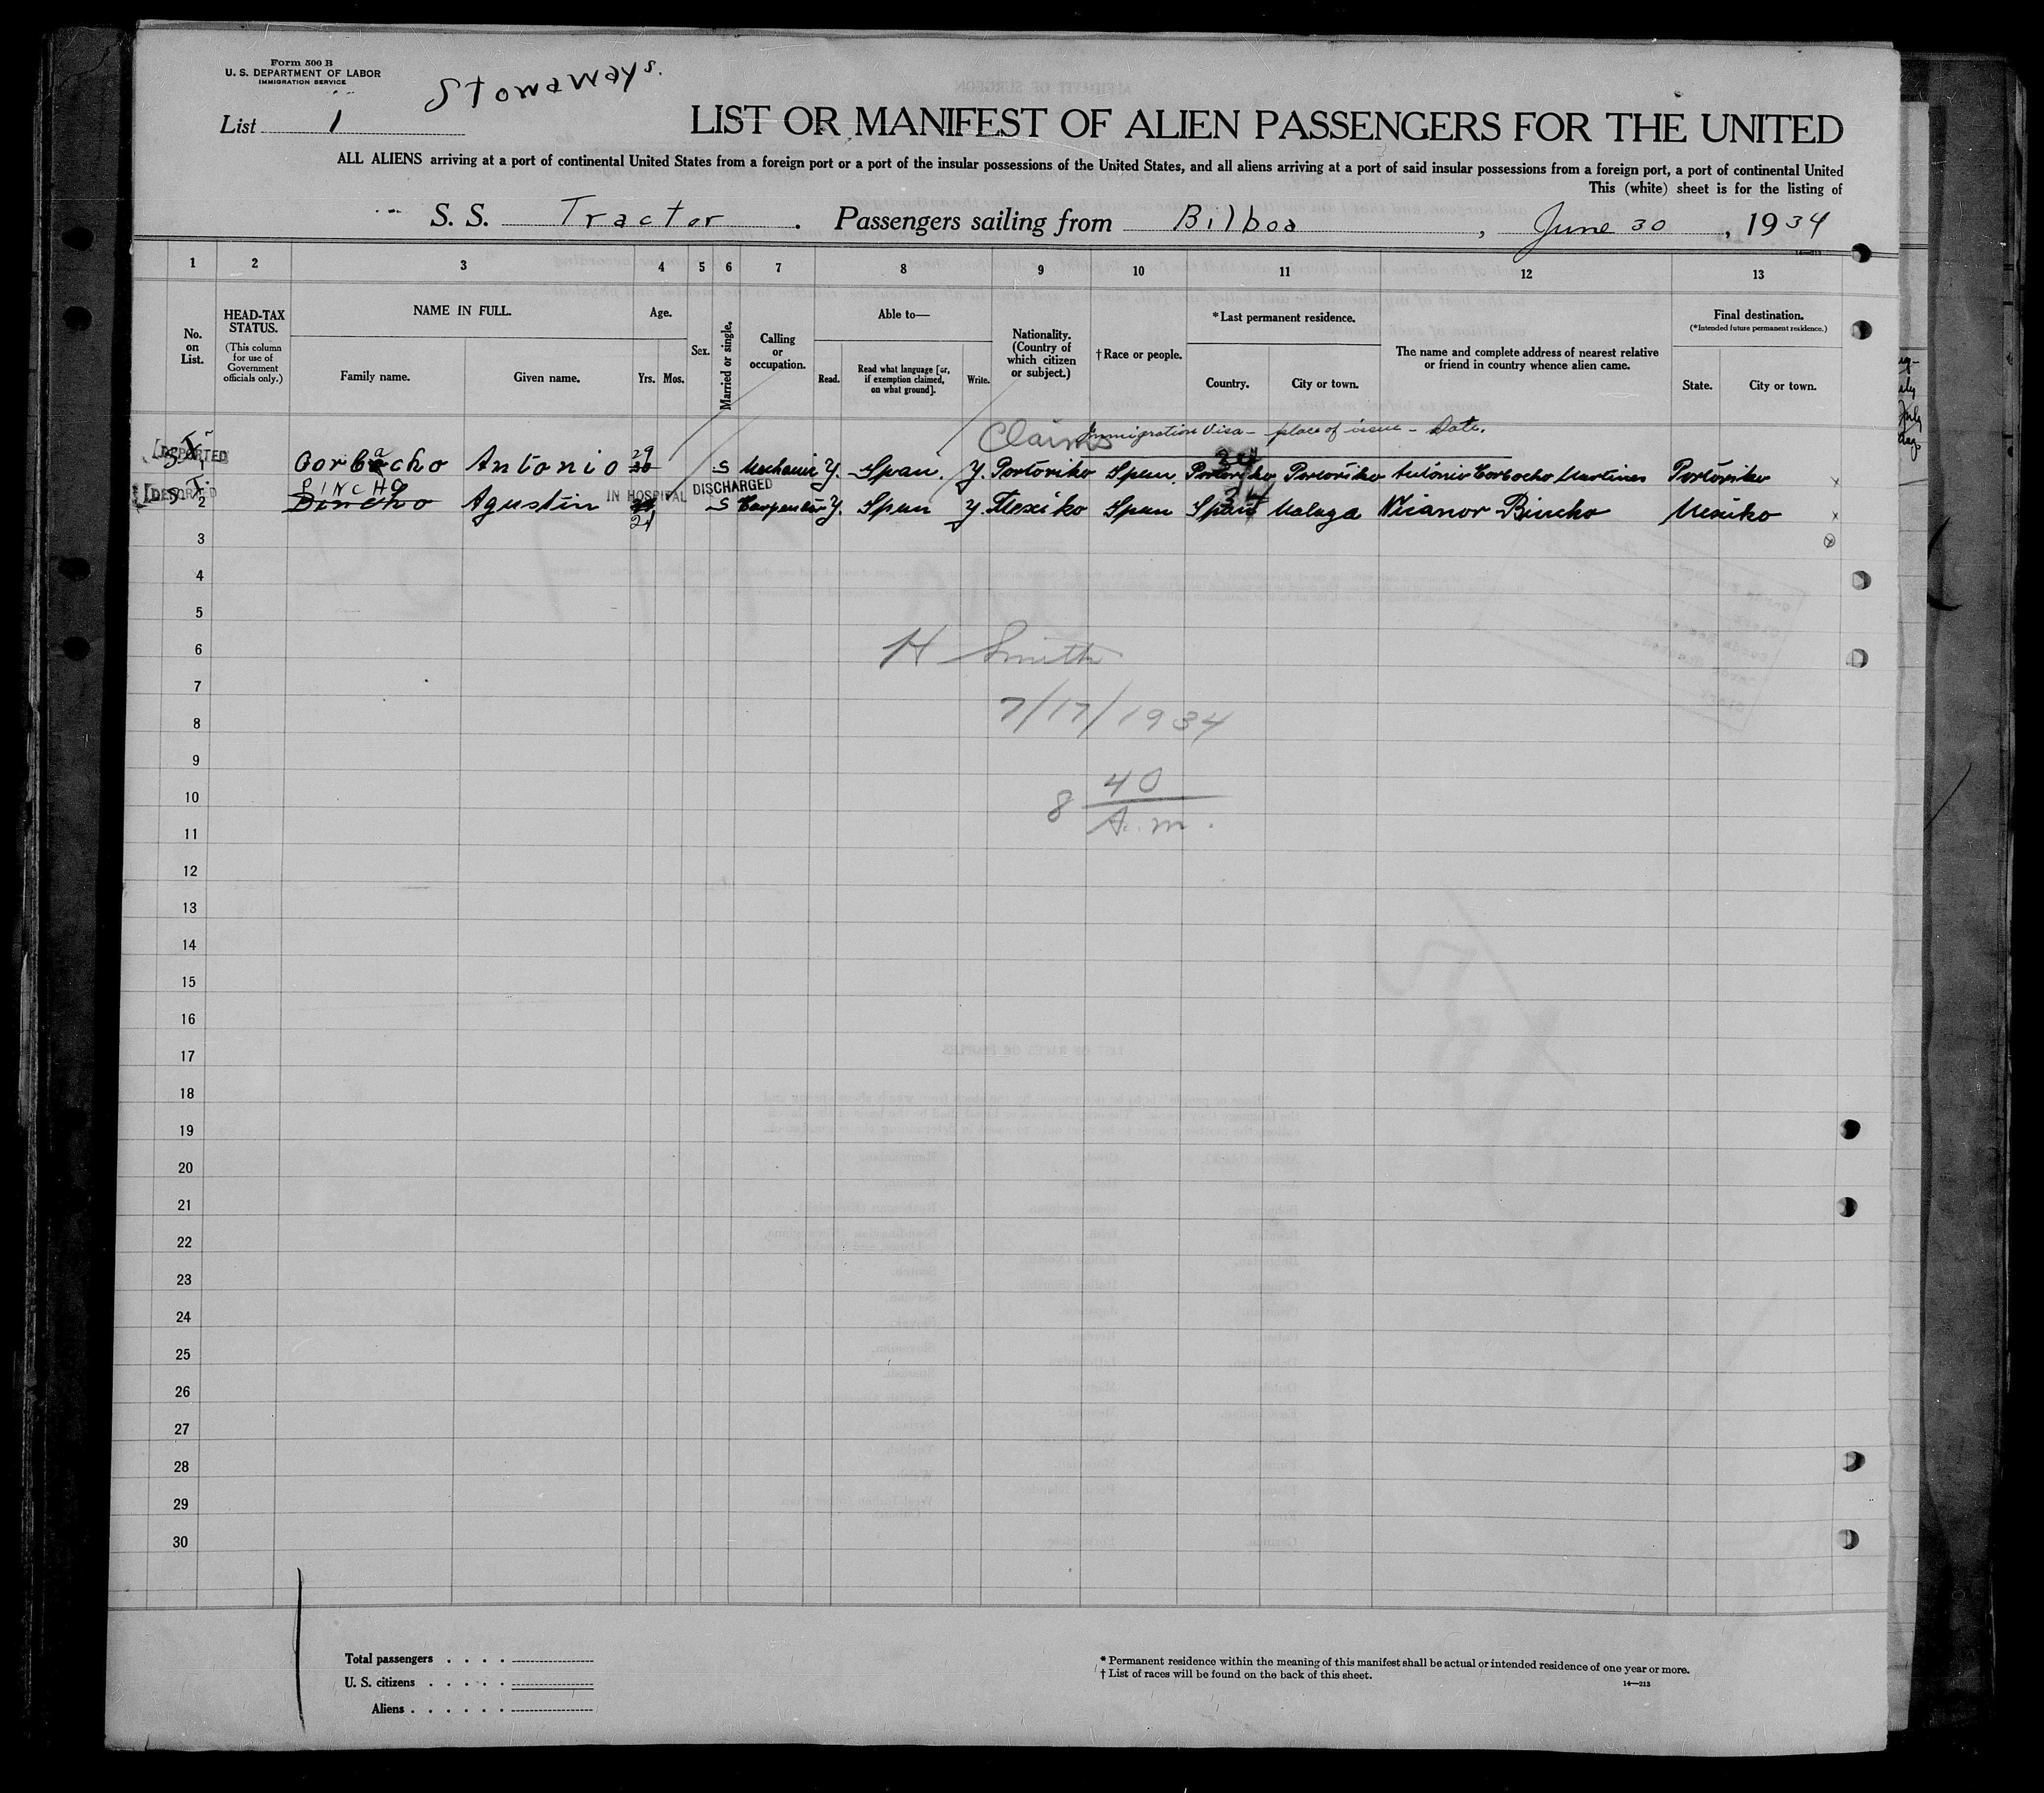 Form 500 B
U. S. DEPARTMENT OF LABOR
IMMIGRATION SERVICE
Stowaways.
List 1
LIST OR MANIFEST OF ALIEN PASSENGERS FOR THE UNITED
ALL ALIENS arriving at a port of continental United States from a foreign port or a port of the insular possessions of the United States, and all aliens arriving at a port of said insular possessions from a foreign port, a port of continental United
This (white) sheet is for the listing of
S. S. Tractor. Passengers sailing from Bilboa, June 30, 1934
14—213
1 2 3 4 5 6 7 8 9 10 11 12 13
No. on List.
HEAD-TAX STATUS.
(This column for use of Government officials only.)
NAME IN FULL.
Family name. Given name.
Age.
Yrs. Mos.
Sex.
Married or single.
Calling or occupation.
Able to—
Read. Read what language [or, if exemption claimed, on what ground]. Write.
Nationality. (Country of which citizen or subject.)
†Race or people.
*Last permanent residence.
Country. City or town.
The name and complete address of nearest relative or friend in country whence alien came.
Final destination.
(*Intended future permanent residence.)
State. City or town.
Claims Immigration Visa – place of issue – Date.
DEPORTED
1 Corbacho Antonio 29 S Mechanic Y. Span. Y. Portoriko Span Portoriko Portoriko Antonio Corbocho Martines Portoriko
PINCHO IN HOSPITAL DISCHARGED
DEPORTED
2 Dincho Agustin 21 S Carpenter Y. Span Y. Mexiko Span Spain Malaga Nicanor Pincho Mexiko
3
4
5
6
H Smith
7
7/17/1934
8
9
10
8 40 A.m.
11
12
13
14
15
16
17
18
19
20
21
22
23
24
25
26
27
28
29
30
Total passengers
U. S. citizens
Aliens
* Permanent residence within the meaning of this manifest shall be actual or intended residence of one year or more.
† List of races will be found on the back of this sheet.
14—213